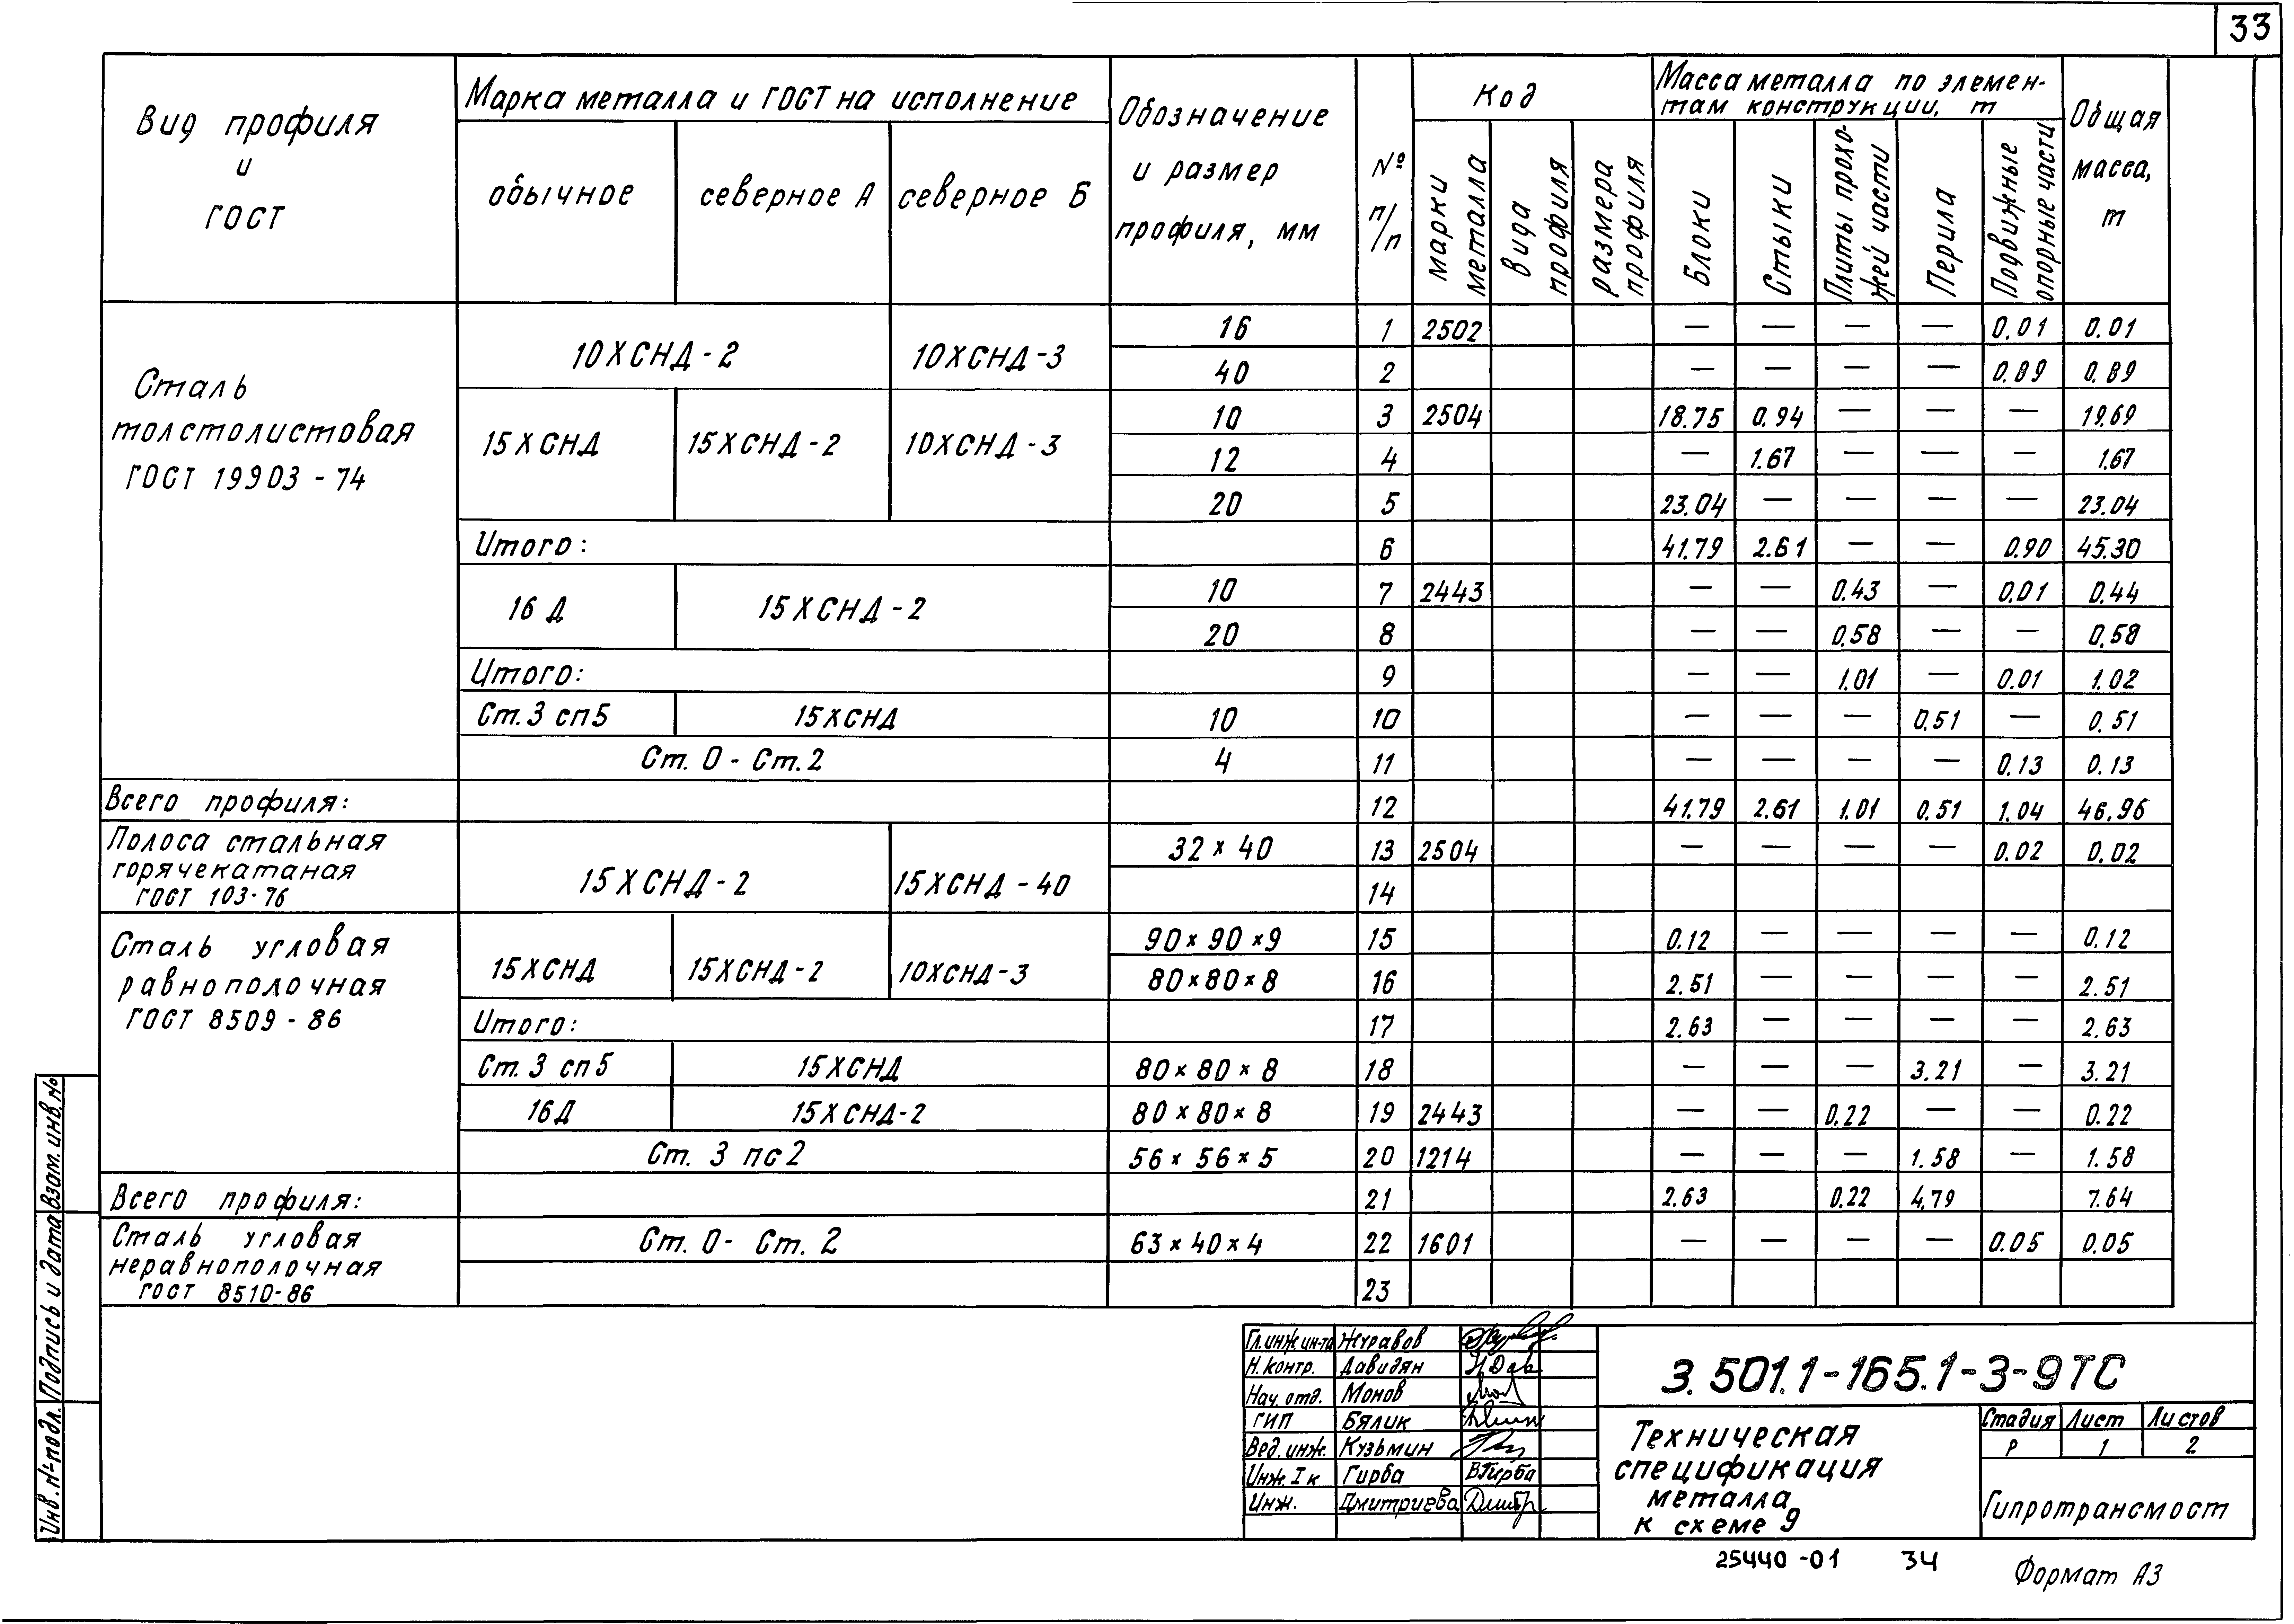 33
Вид профиля и ГОСТ
Марка металла и ГОСТ на исполнение
обычное северное А северное Б
Обозначение и размер профиля, мм
№ п/п
Код
марки металла
вида профиля
размера профиля
Масса металла по элемен-
там конструкции, т
Блоки
Стыки
Плиты проезжей части
Перила
Подвижные опорные части
Общая масса, т
Сталь
толстолистовая
ГОСТ 19903-74
10ХСНД-2 10ХСНД-3
16 1 2502 — — — — 0.01 0.01
40 2 — — — — 0.89 0.89
15ХСНД 15ХСНД-2 10ХСНД-3
10 3 2504 18.75 0.94 — — — 19.69
12 4 — 1.67 — — — 1.67
20 5 23.04 — — — — 23.04
Итого: 6 41.79 2.61 — — 0.90 45.30
16Д 15ХСНД-2
10 7 2443 — — 0.43 — 0.01 0.44
20 8 — — 0.58 — — 0.58
Итого: 9 — — 1.01 — 0.01 1.02
Ст.3 сп5 15ХСНД 10 10 — — — 0.51 — 0.51
Ст.0-Ст.2 4 11 — — — — 0.13 0.13
Всего профиля: 12 41.79 2.61 1.01 0.51 1.04 46.96
Полоса стальная
горячекатаная
ГОСТ 103-76
15ХСНД-2 15ХСНД-40
32×40 13 2504 — — — — 0.02 0.02
14
Сталь угловая
равнополочная
ГОСТ 8509-86
15ХСНД 15ХСНД-2 10ХСНД-3
90×90×9 15 0.12 — — — — 0.12
80×80×8 16 2.51 — — — — 2.51
Итого: 17 2.63 — — — — 2.63
Ст.3 сп5 15ХСНД 80×80×8 18 — — — 3.21 — 3.21
16Д 15ХСНД-2 80×80×8 19 2443 — — 0.22 — — 0.22
Ст. 3 пс2 56×56×5 20 1214 — — — 1.58 — 1.58
Всего профиля: 21 2.63 0.22 4.79 7.64
Сталь угловая
неравнополочная
ГОСТ 8510-86
Ст.0-Ст.2 63×40×4 22 1601 — — — — 0.05 0.05
23
Инв. № подл. Подпись и дата Взам. инв. №
Гл.инж.ин-та Журавов
Н.контр. Давидян
Нач.отд. Монов
ГИП Бялик
Вед.инж. Кузьмин
Инж. I к Гирба ВГирба
Инж. Дмитриева
3.501.1-165.1-3-9ТС
Техническая
спецификация
металла
к схеме 9
Стадия Лист Листов
Р 1 2
Гипротрансмост
25440-01 34
Формат А3